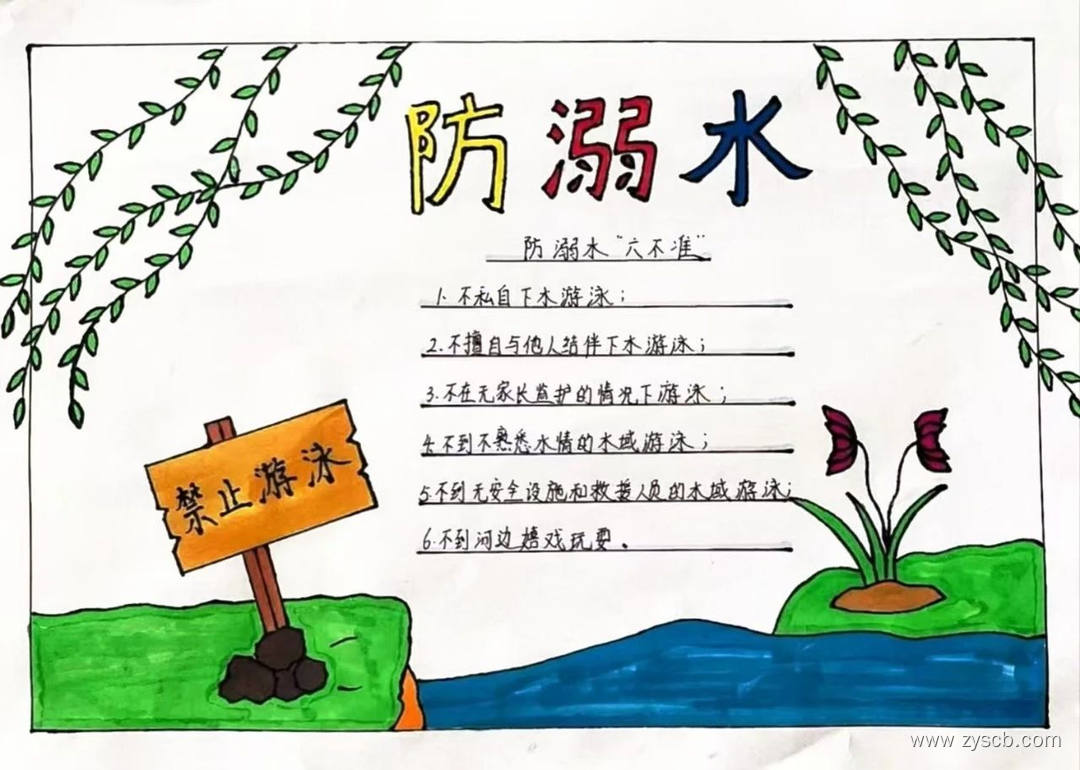 防溺水
防溺水“六不准”
1.不私自下水游泳；
2.不擅自与他人结伴下水游泳；
3.不在无家长监护的情况下游泳；
4.不到不熟悉水情的水域游泳；
5.不到无安全设施和救援人员的水域游泳；
6.不到河边嬉戏玩耍。
禁止游泳
www.zyscb.com